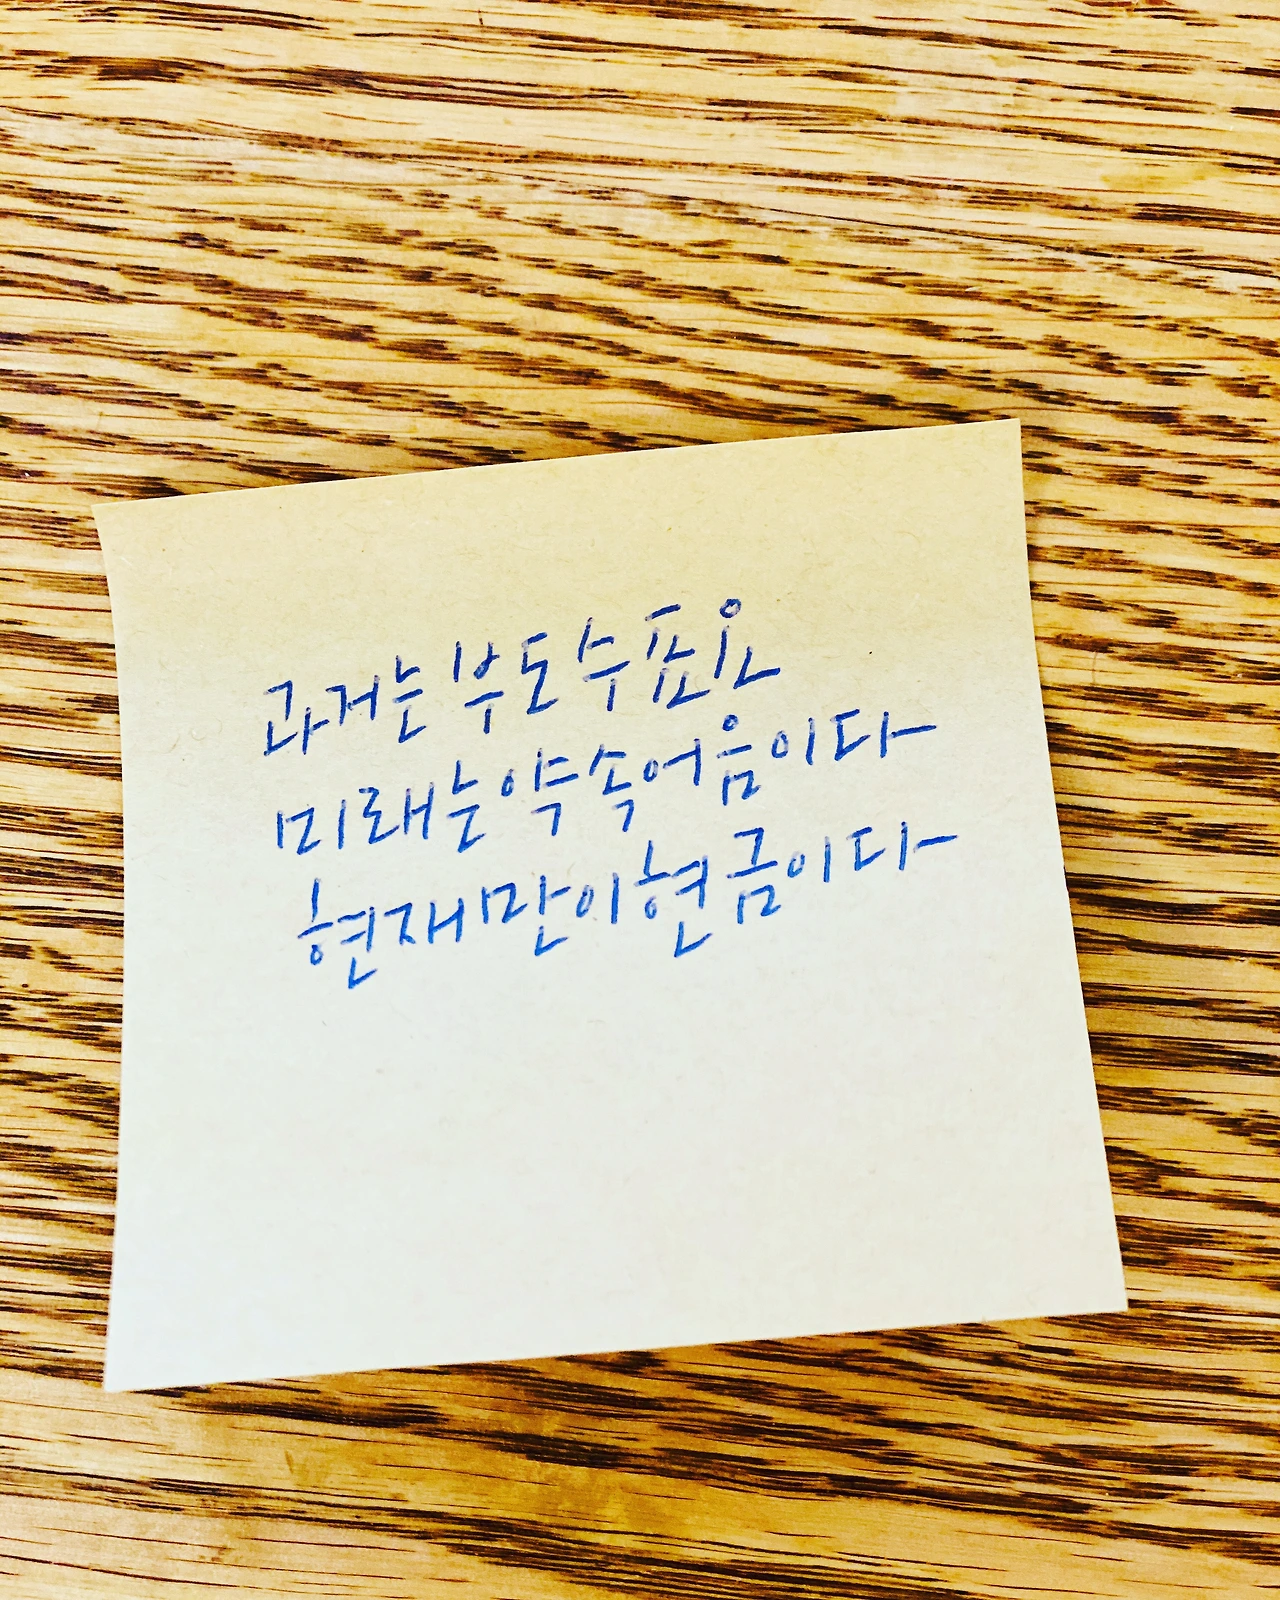 과거는 부도수표요
미래는 약속어음이다
현재만이 현금이다